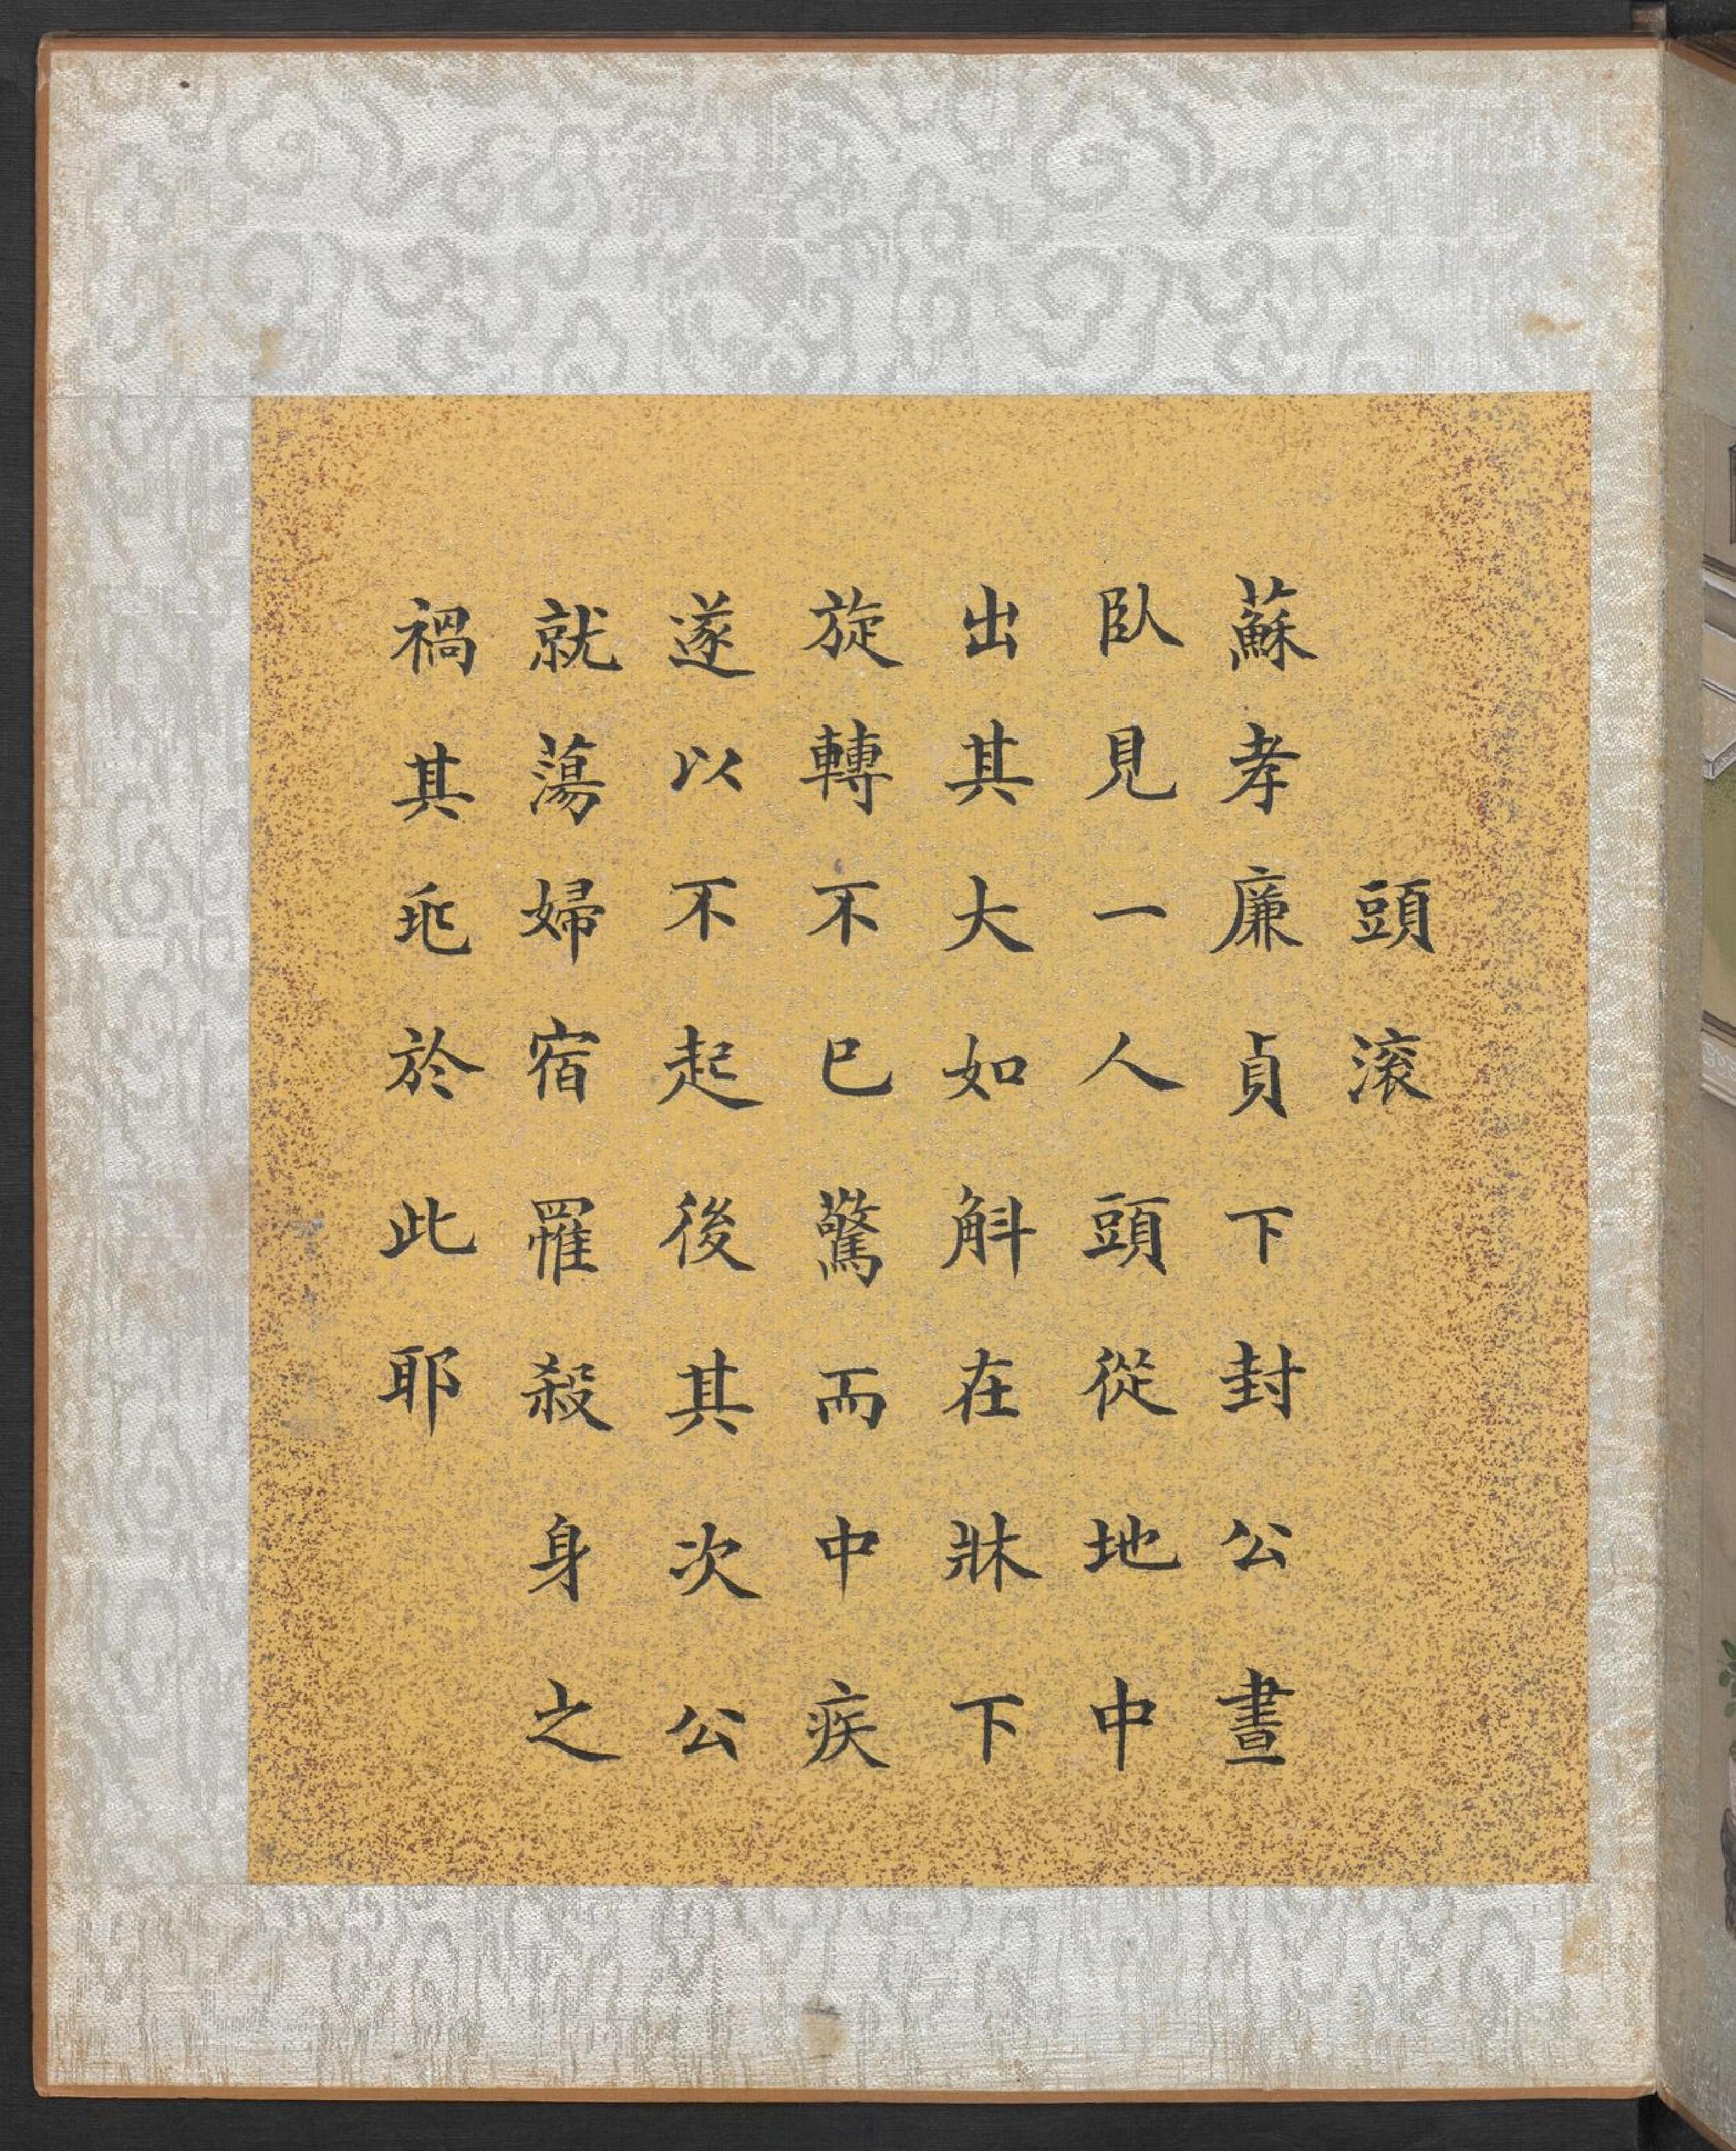 頭滚
蘇孝廉貞下封公晝
臥見一人頭從地中
出其大如斛在牀下
旋轉不已驚而中疾
遂以不起後其次公
就蕩婦宿罹殺身之
禍其兆於此耶